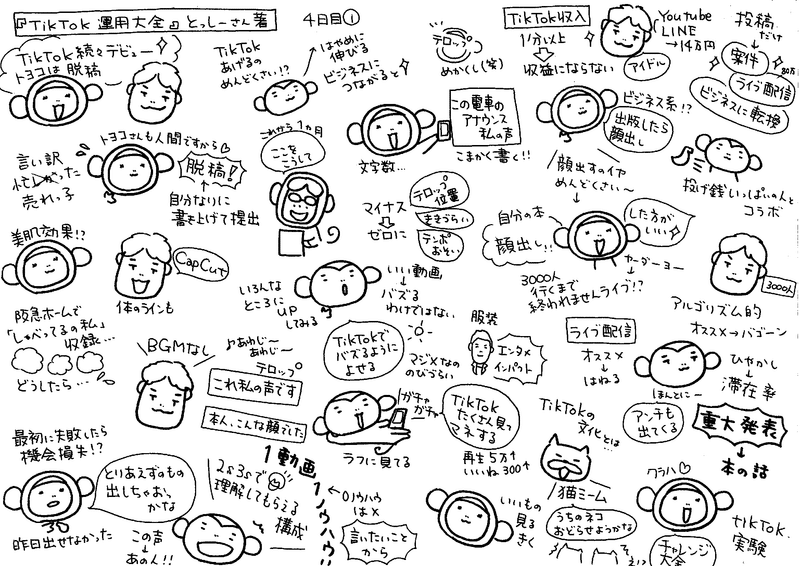 『TikTok 運用大全』とっしーさん著
4日目①
TikTok続々デビュー
トヨコは脱稿
トヨコさんも人間ですから♡
脱稿!
言い訳
忙しかった
売れっ子
自分なりに
書き上げて提出
美肌効果!?
CapCutで
1本のラインも
阪急ホームで
「しゃべってるの私」
収録…
どうしたら…
BGMなし
♪あわじ〜
あわじ〜
テロップ
これ私の声です
本人、こんな顔でした
最初に失敗したら
機会損失!?
とりあえずのもの
出しちゃおっかな
昨日出せなかった
この声
↓
あの人!!
2s3sで
理解してもらえる
構成
1動画
1ノウハウ!!
TikTok
あげるの
めんどくさい!?
はやめに
伸びる
ビジネスに
つながると
これから1ヶ月
ここを
こうして
テロップ
めかくし(笑)
この電車の
アナウンス
私の声
文字数…
こまかく書く!!
マイナス
⇩
ゼロに
テロップ
位置
ききづらい
テンポ
おそい
いろんな
ところに
UP
してみる
いい動画
→
バズる
わけではない
TikTokで
バズるように
よせる
マジメなの
のびづらい
服装
エンタメ
インパクト
ガチャ
ガチャ
ラフに見てる
TikTok
たくさん見て
マネする
再生5万↑
いいね300↑
←〇ノウハウ
は×
言いたいこと
から
いいもの
見る
きく
TikTok収入
1分以上
⇩
収益にならない
アイドル
Youtube
LINE
→14万円
投稿
だけ
案件
80万
ライブ配信
ビジネスに転換
ビジネス系!?
出版したら
顔出し
顔出すのイヤ
めんどくさい〜
投げ銭いっぱいの人と
コラボ
自分の本
顔出し!!
した方が
いい
やーグーヨー
3000人
行くまで
終われませんライブ!?
3000人
アルゴリズム的
オススメ→バゴーン
ライブ配信
オススメ
↓
はねる
ほんとに〜
ひやかし
↓
滞在率
アンチも
出てくる
重大発表
↓
本の話
TikTokの
文化とは…
猫ミーム
うちのネコ
おどらせようかな
クラハ♡
チャレンジ
大会
tikTok
実験